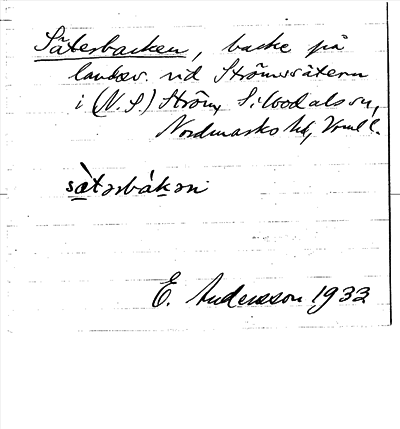 Säterbacken, backe på
landsv. vid Strömssätern
i (N. S.) Ström, Silbodals sn,
Nordmarks hd, Vrml l.
sæ̀tərbákən
E. Andersson 1933